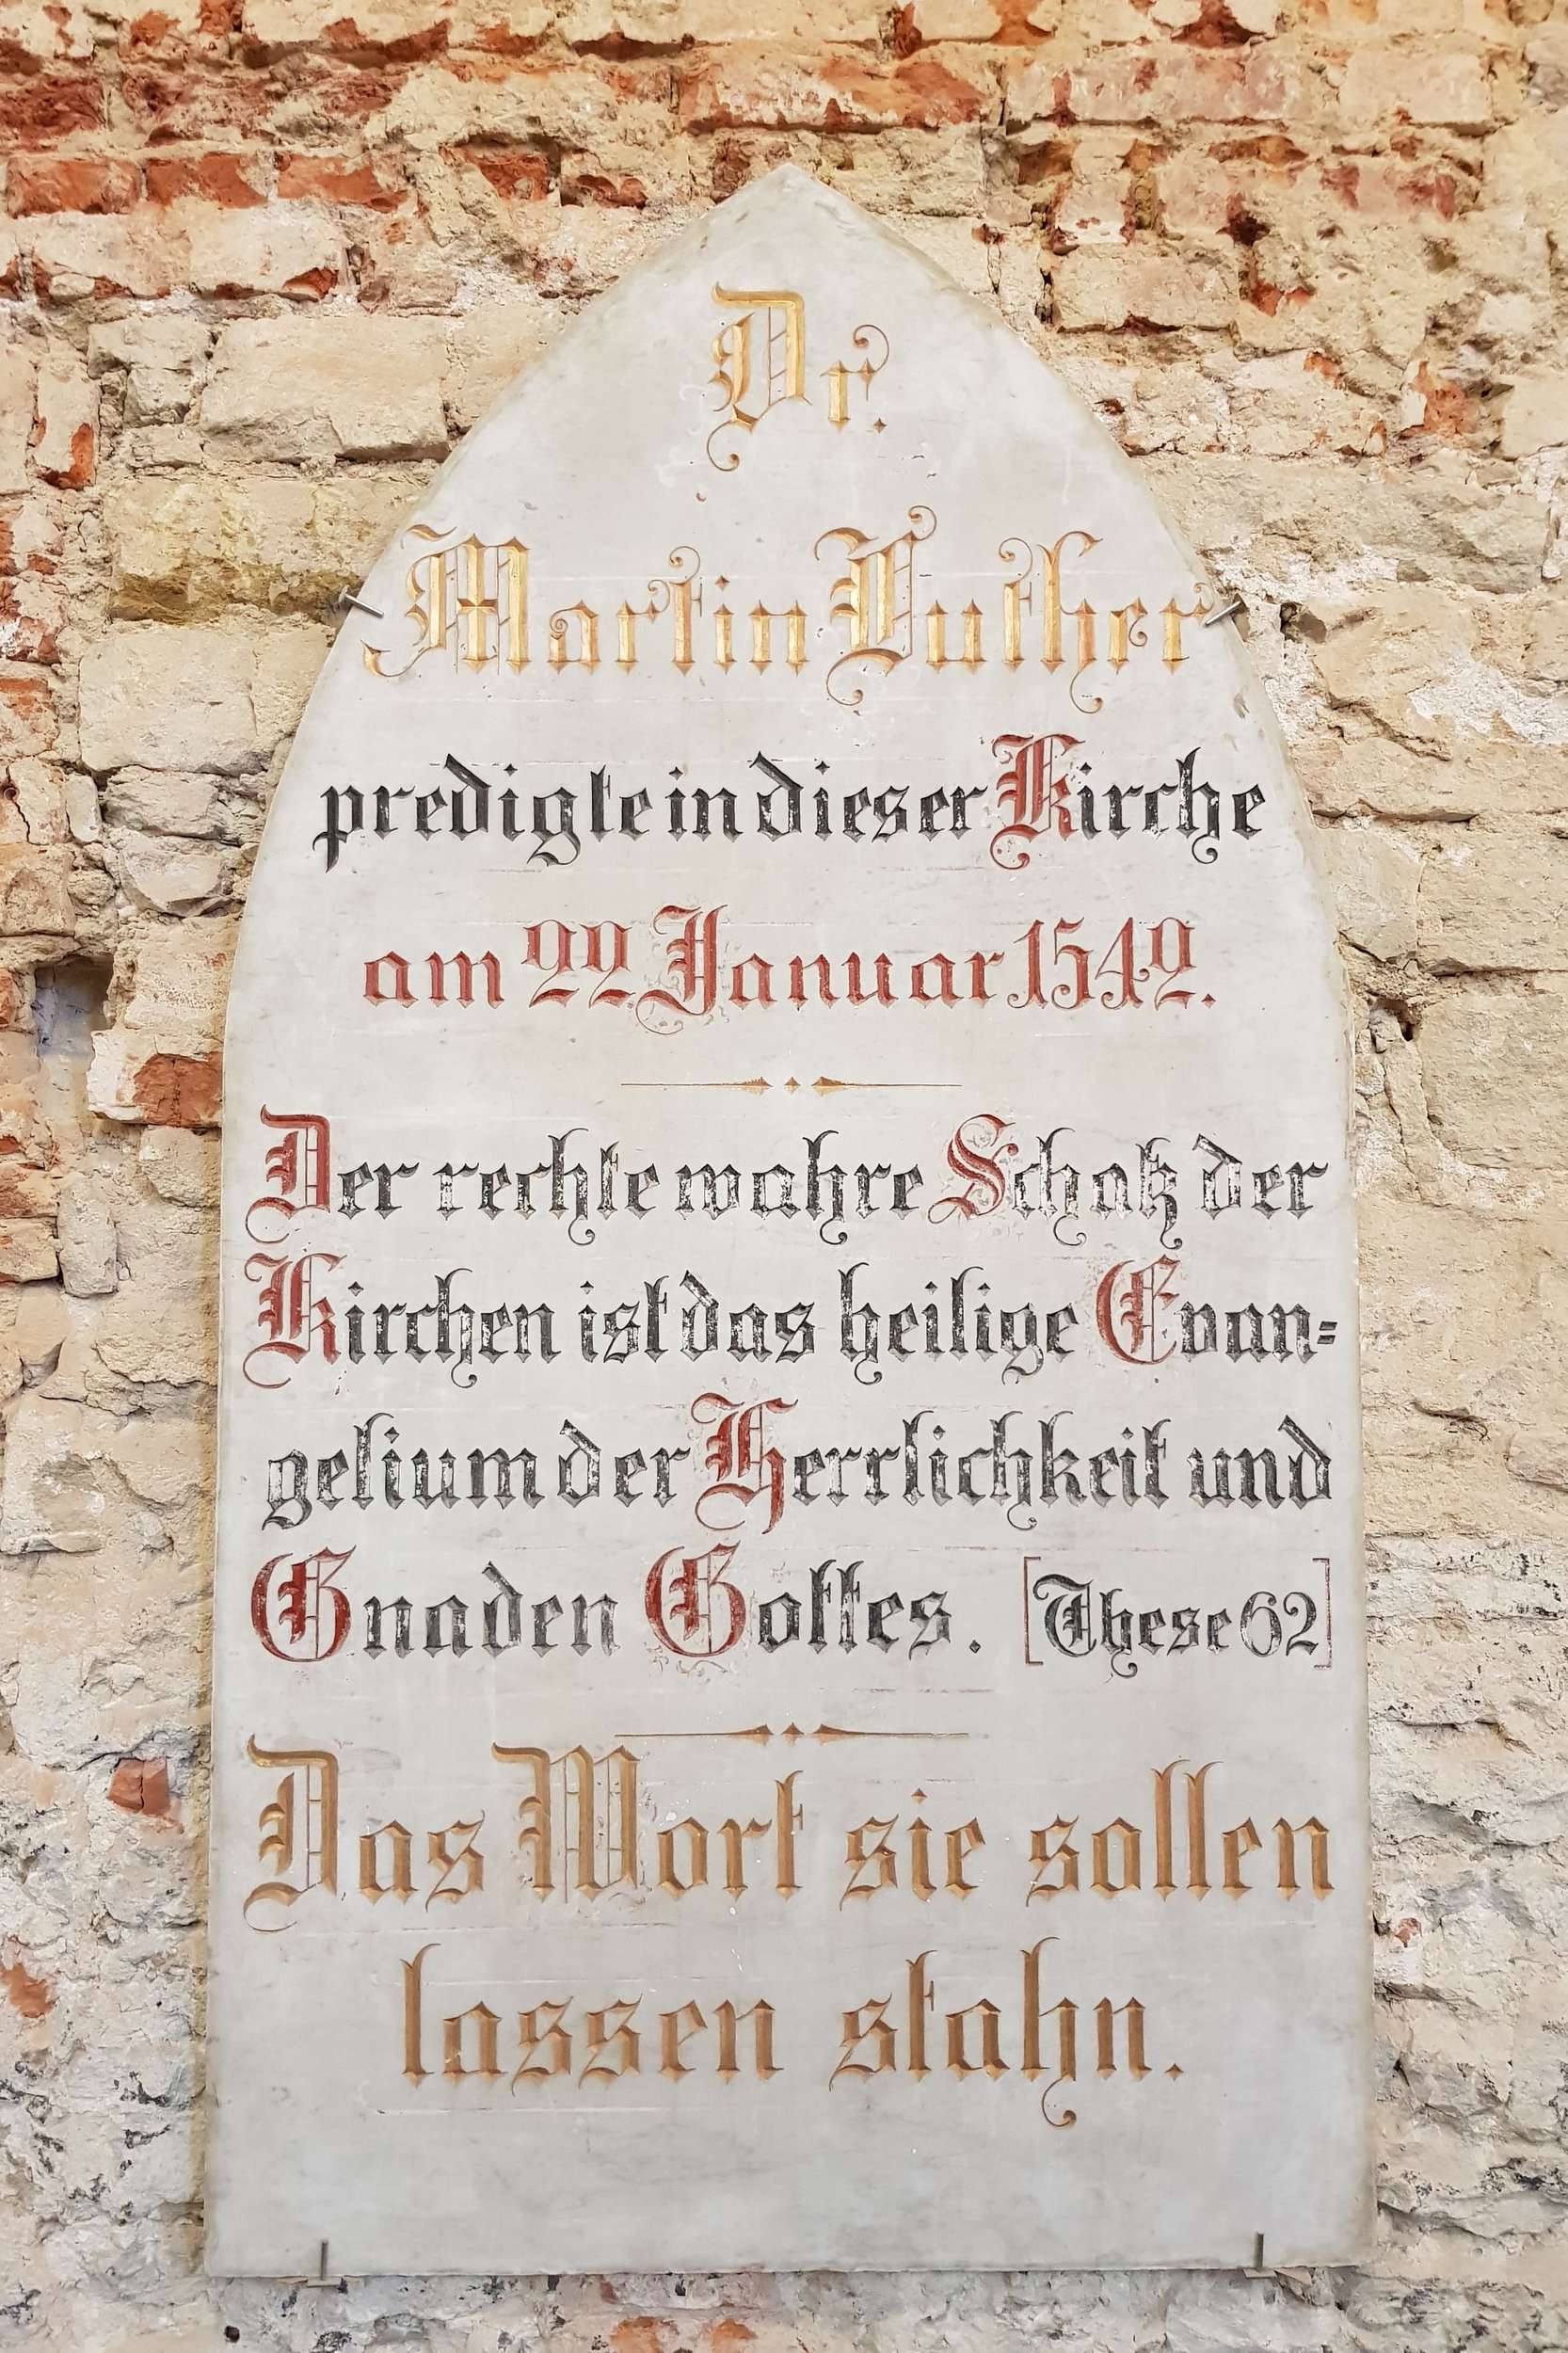 Dr.
Martin Luther
predigte in dieser Kirche
am 22 Januar 1542.
Der rechte wahre Schatz der
Kirchen ist das heilige Evan=
gelium der Herrlichkeit und
Gnaden Gottes. [These 62]
Das Wort sie sollen
lassen stahn.